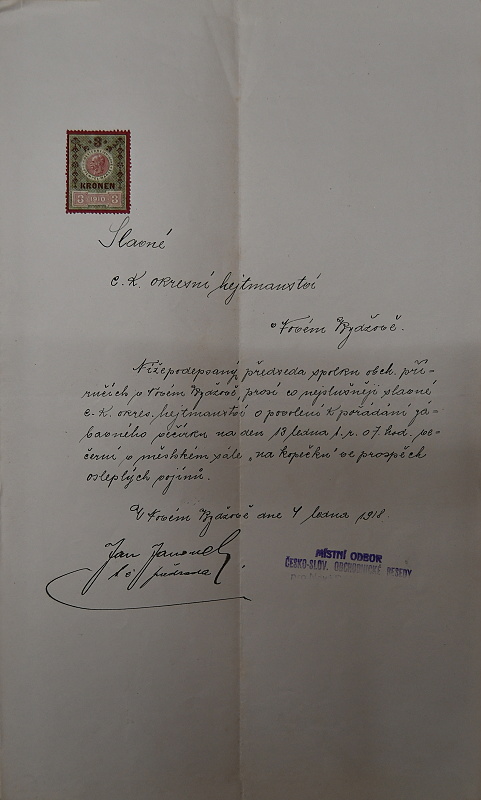 3
KRONEN
3 1910 3
Slavné
c. k. okresní hejtmanství
v Novém Bydžově.
Nížepodepsaný předseda spolku obch. pří-
ručích v Novém Bydžově, prosí co nejslušněji slavné
c. k. okres. hejtmanství o povolení k pořádání zá-
bavného večírku na den 13 ledna t. r. o 7. hod. ve-
černí v městském sále „na kopečku" ve prospěch
osleplých vojínů.
V Novém Bydžově dne 4 ledna 1918.
Jan
t. č. předseda
MÍSTNÍ ODBOR
ČESKO-SLOV. OBCHODNICKÉ BESEDY